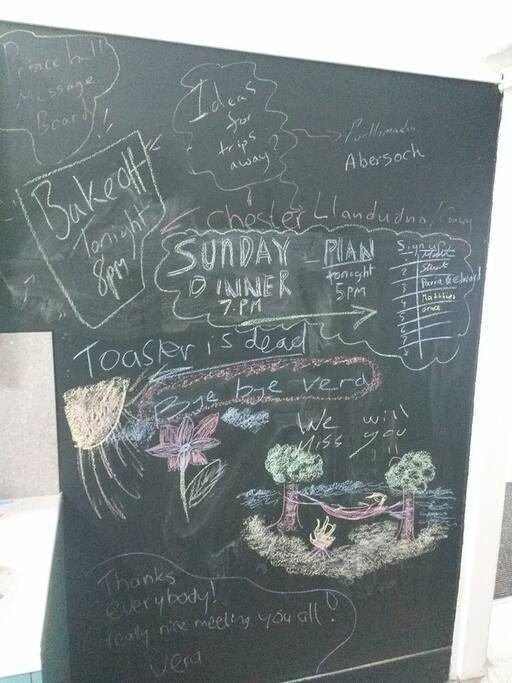 Prince hall
Message
Board!
Ideas
for
trips
away?
Porthmadog
Abersoch
Bakeoff
Tonight
8pm
Chester Llandudno/Conwy
SUNDAY
DINNER
7.PM
PLAN
tonight
5PM
Sign up
1
2
3 Paria & Edward
4 Matthies
5
6
7
Toaster is dead
Bye bye vera
We will
Miss you!!
Thanks
everybody!
really nice meeting you all!
Vera